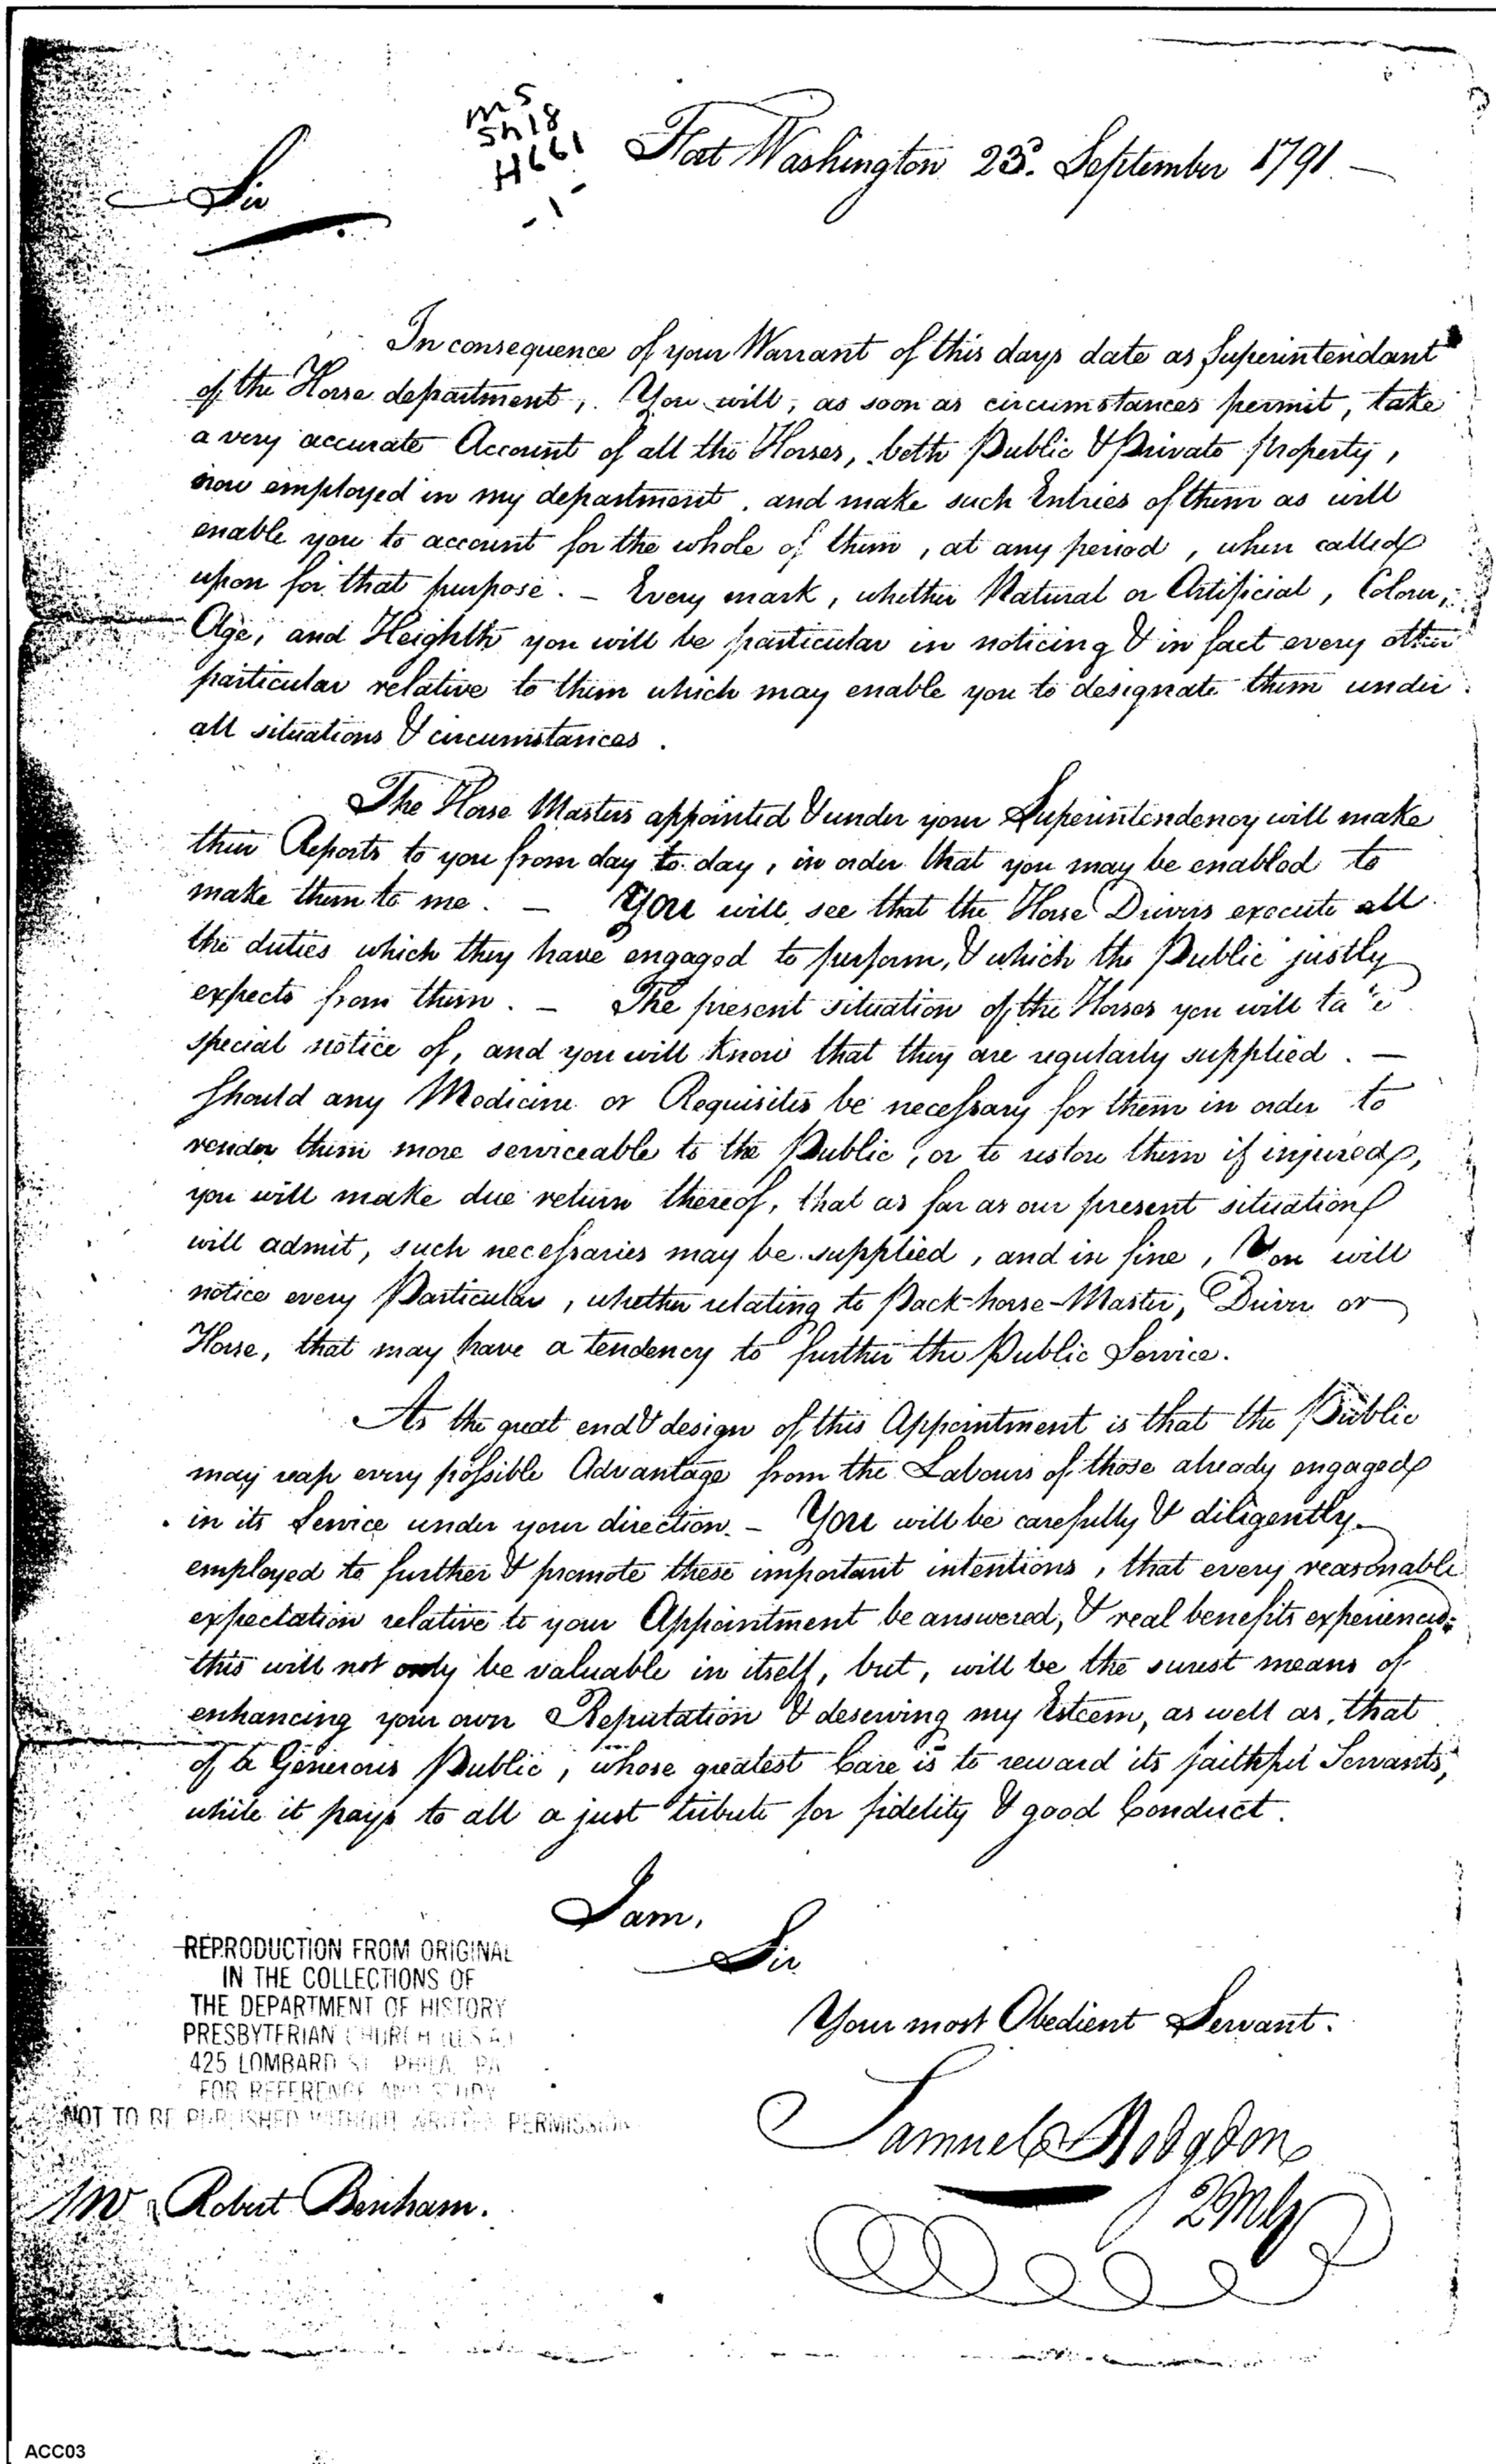 MS
Sh18
H661
-1-
Fort Washington 23d. September 1791 —
Sir
In consequence of your Warrant of this days date as Superintendant
of the Horse department, You will, as soon as circumstances permit, take
a very accurate Account of all the Horses, both Public & Private property,
now employed in my department, and make such Entries of them as will
enable you to account for the whole of them, at any period, when called
upon for that purpose. — Every mark, whether Natural or Artificial, Colour,
Age, and Heighth you will be particular in noticing & in fact every other
particular relative to them which may enable you to designate them under
all situations & circumstances.
The Horse Masters appointed & under your Superintendency will make
their Reports to you from day to day, in order that you may be enabled to
make them to me. — You will see that the Horse Drivers execute all
the duties which they have engaged to perform, & which the Public justly
expects from them. — The present situation of the Horses you will take
special notice of, and you will know that they are regularly supplied. —
Should any Medicine or Requisites be necessary for them in order to
render them more serviceable to the Public, or to restore them if injured,
you will make due return thereof, that as far as our present situation
will admit, such necessaries may be supplied, and in fine, You will
notice every Particular, whether relating to Pack-horse-Master, Driver or
Horse, that may have a tendency to further the Public Service.
As the great end & design of this Appointment is that the Public
may reap every possible Advantage from the Labours of those already engaged
in its Service under your direction. — You will be carefully & diligently
employed to further & promote these important intentions, that every reasonable
expectation relative to your Appointment be answered, & real benefits experienced:
this will not only be valuable in itself, but, will be the surest means of
enhancing your own Reputation & deserving my Esteem, as well as, that
of a Generous Public, whose greatest Care is to reward its faithful Servants,
while it pays to all a just tribute for fidelity & good Conduct.
I am,
Sir
Your most Obedient Servant.
Samuel Hodgdon
QMG
REPRODUCTION FROM ORIGINAL
IN THE COLLECTIONS OF
THE DEPARTMENT OF HISTORY
PRESBYTERIAN CHURCH (U.S.A.)
425 LOMBARD ST. PHILA. PA
FOR REFERENCE AND STUDY
NOT TO BE PUBLISHED WITHOUT WRITTEN PERMISSION
Mr Robert Benham.
ACC03